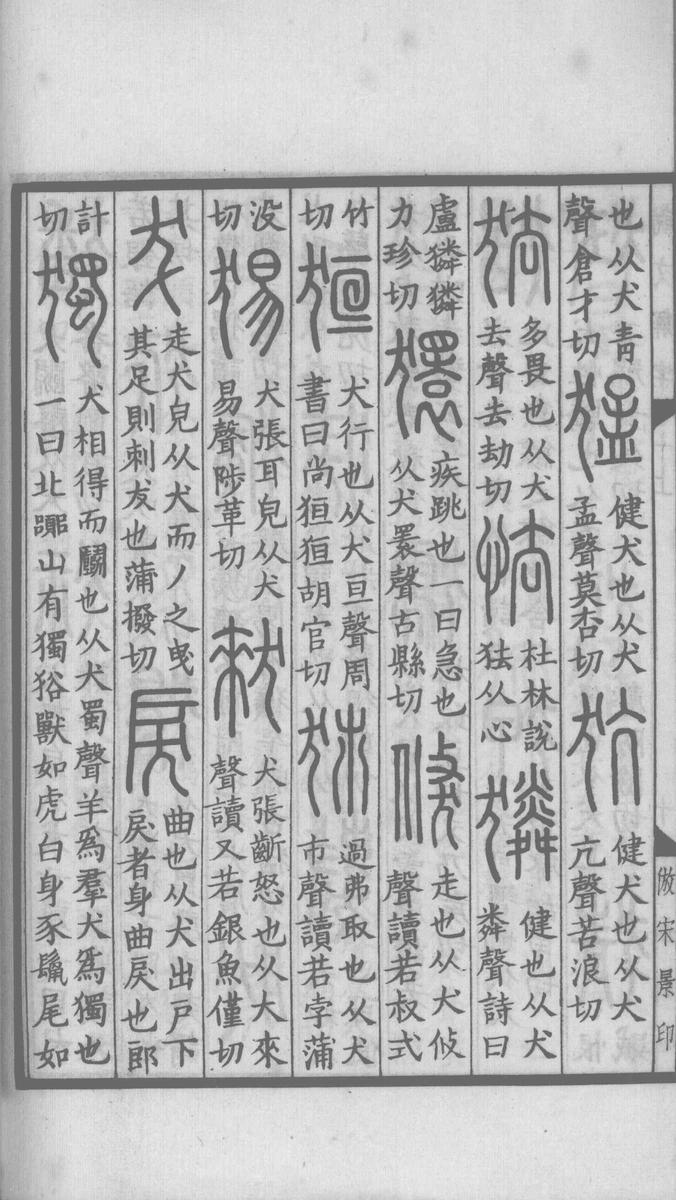 也从犬青聲倉才切猛健犬也从犬孟聲莫杏切犺健犬也从犬亢聲苦浪切
㹤多畏也从犬去聲去劫切怯杜林說㹤从心獜健也从犬粦聲詩曰
盧獜獜力珍切獧疾跳也一曰急也从犬睘聲古縣切倏走也从犬攸聲讀若叔式
竹切狟犬行也从犬亘聲周書曰尚狟狟胡官切犻過弗取也从犬巿聲讀若孛蒲
没切𤟍犬張耳皃从犬易聲陟革切猌犬張齗怒也从大來聲讀又若銀魚僅切
犮走犬皃从犬而丿之曳其足則剌犮也蒲撥切戾曲也从犬出戶下戾者身曲戾也郎
計切獨犬相得而鬭也从犬蜀聲羊爲羣犬爲獨也一曰北嚻山有獨𤞞獸如虎白身豕鬣尾如
倣宋景印